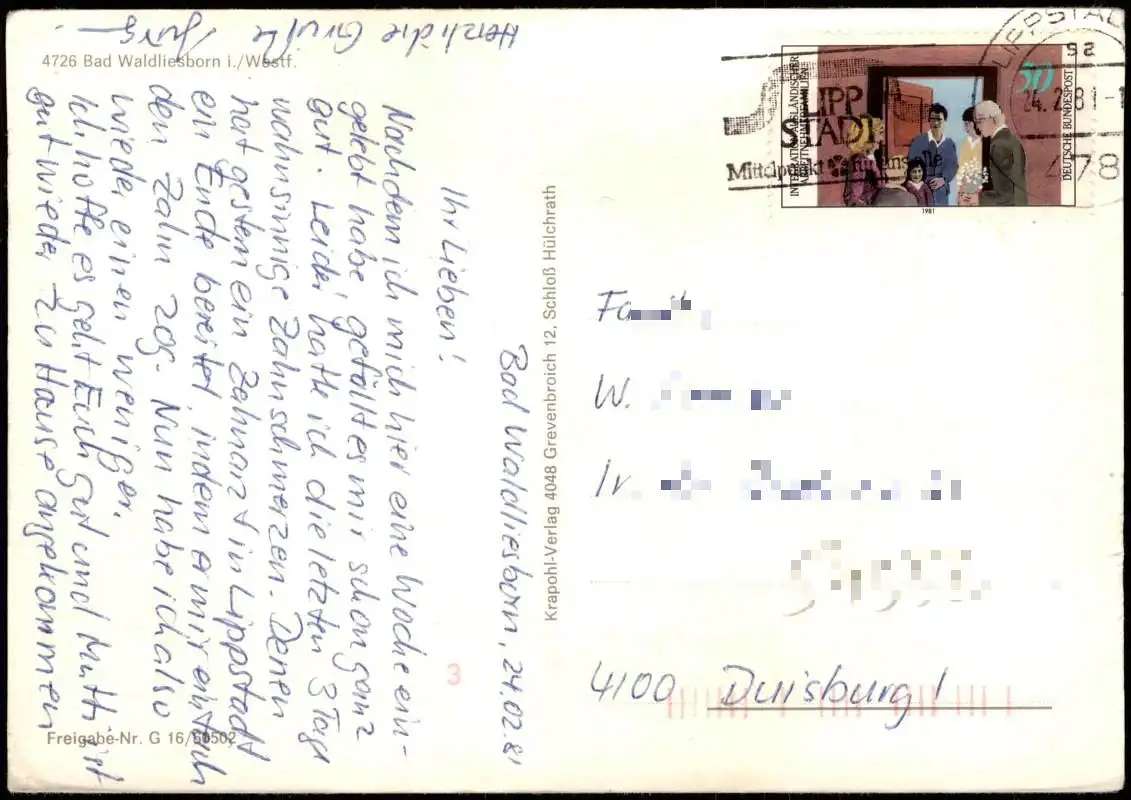 4726 Bad Waldliesborn i./Westf.
Bad Waldliesborn, 24.02.81
Ihr Lieben!
Nachdem ich mich hier eine Woche ein-
gelebt habe, gefällt es mir schon ganz
gut. Leider hatte ich die letzten 3 Tage
wahnsinnige Zahnschmerzen. Denen
hat gestern ein Zahnarzt in Lippstadt
ein Ende bereitet, indem er mir einfach
den Zahn zog. Nun habe ich also
wieder einen weniger.
Ich hoffe es geht Euch gut und Mutti ist
gut wieder zu Hause angekommen
Herzliche Grüße
Jürg
Freigabe-Nr. G 16/50502
Krapohl-Verlag 4048 Grevenbroich 12, Schloß Hülchrath
3
LIPPSTADT
24.2.81-1
478
LIPP
STADT
Mittelpunkt für uns alle
INTEGRATION AUSLÄNDISCHER
ARBEITNEHMERFAMILIEN
50
DEUTSCHE BUNDESPOST
1981
W.
4100 Duisburg 1